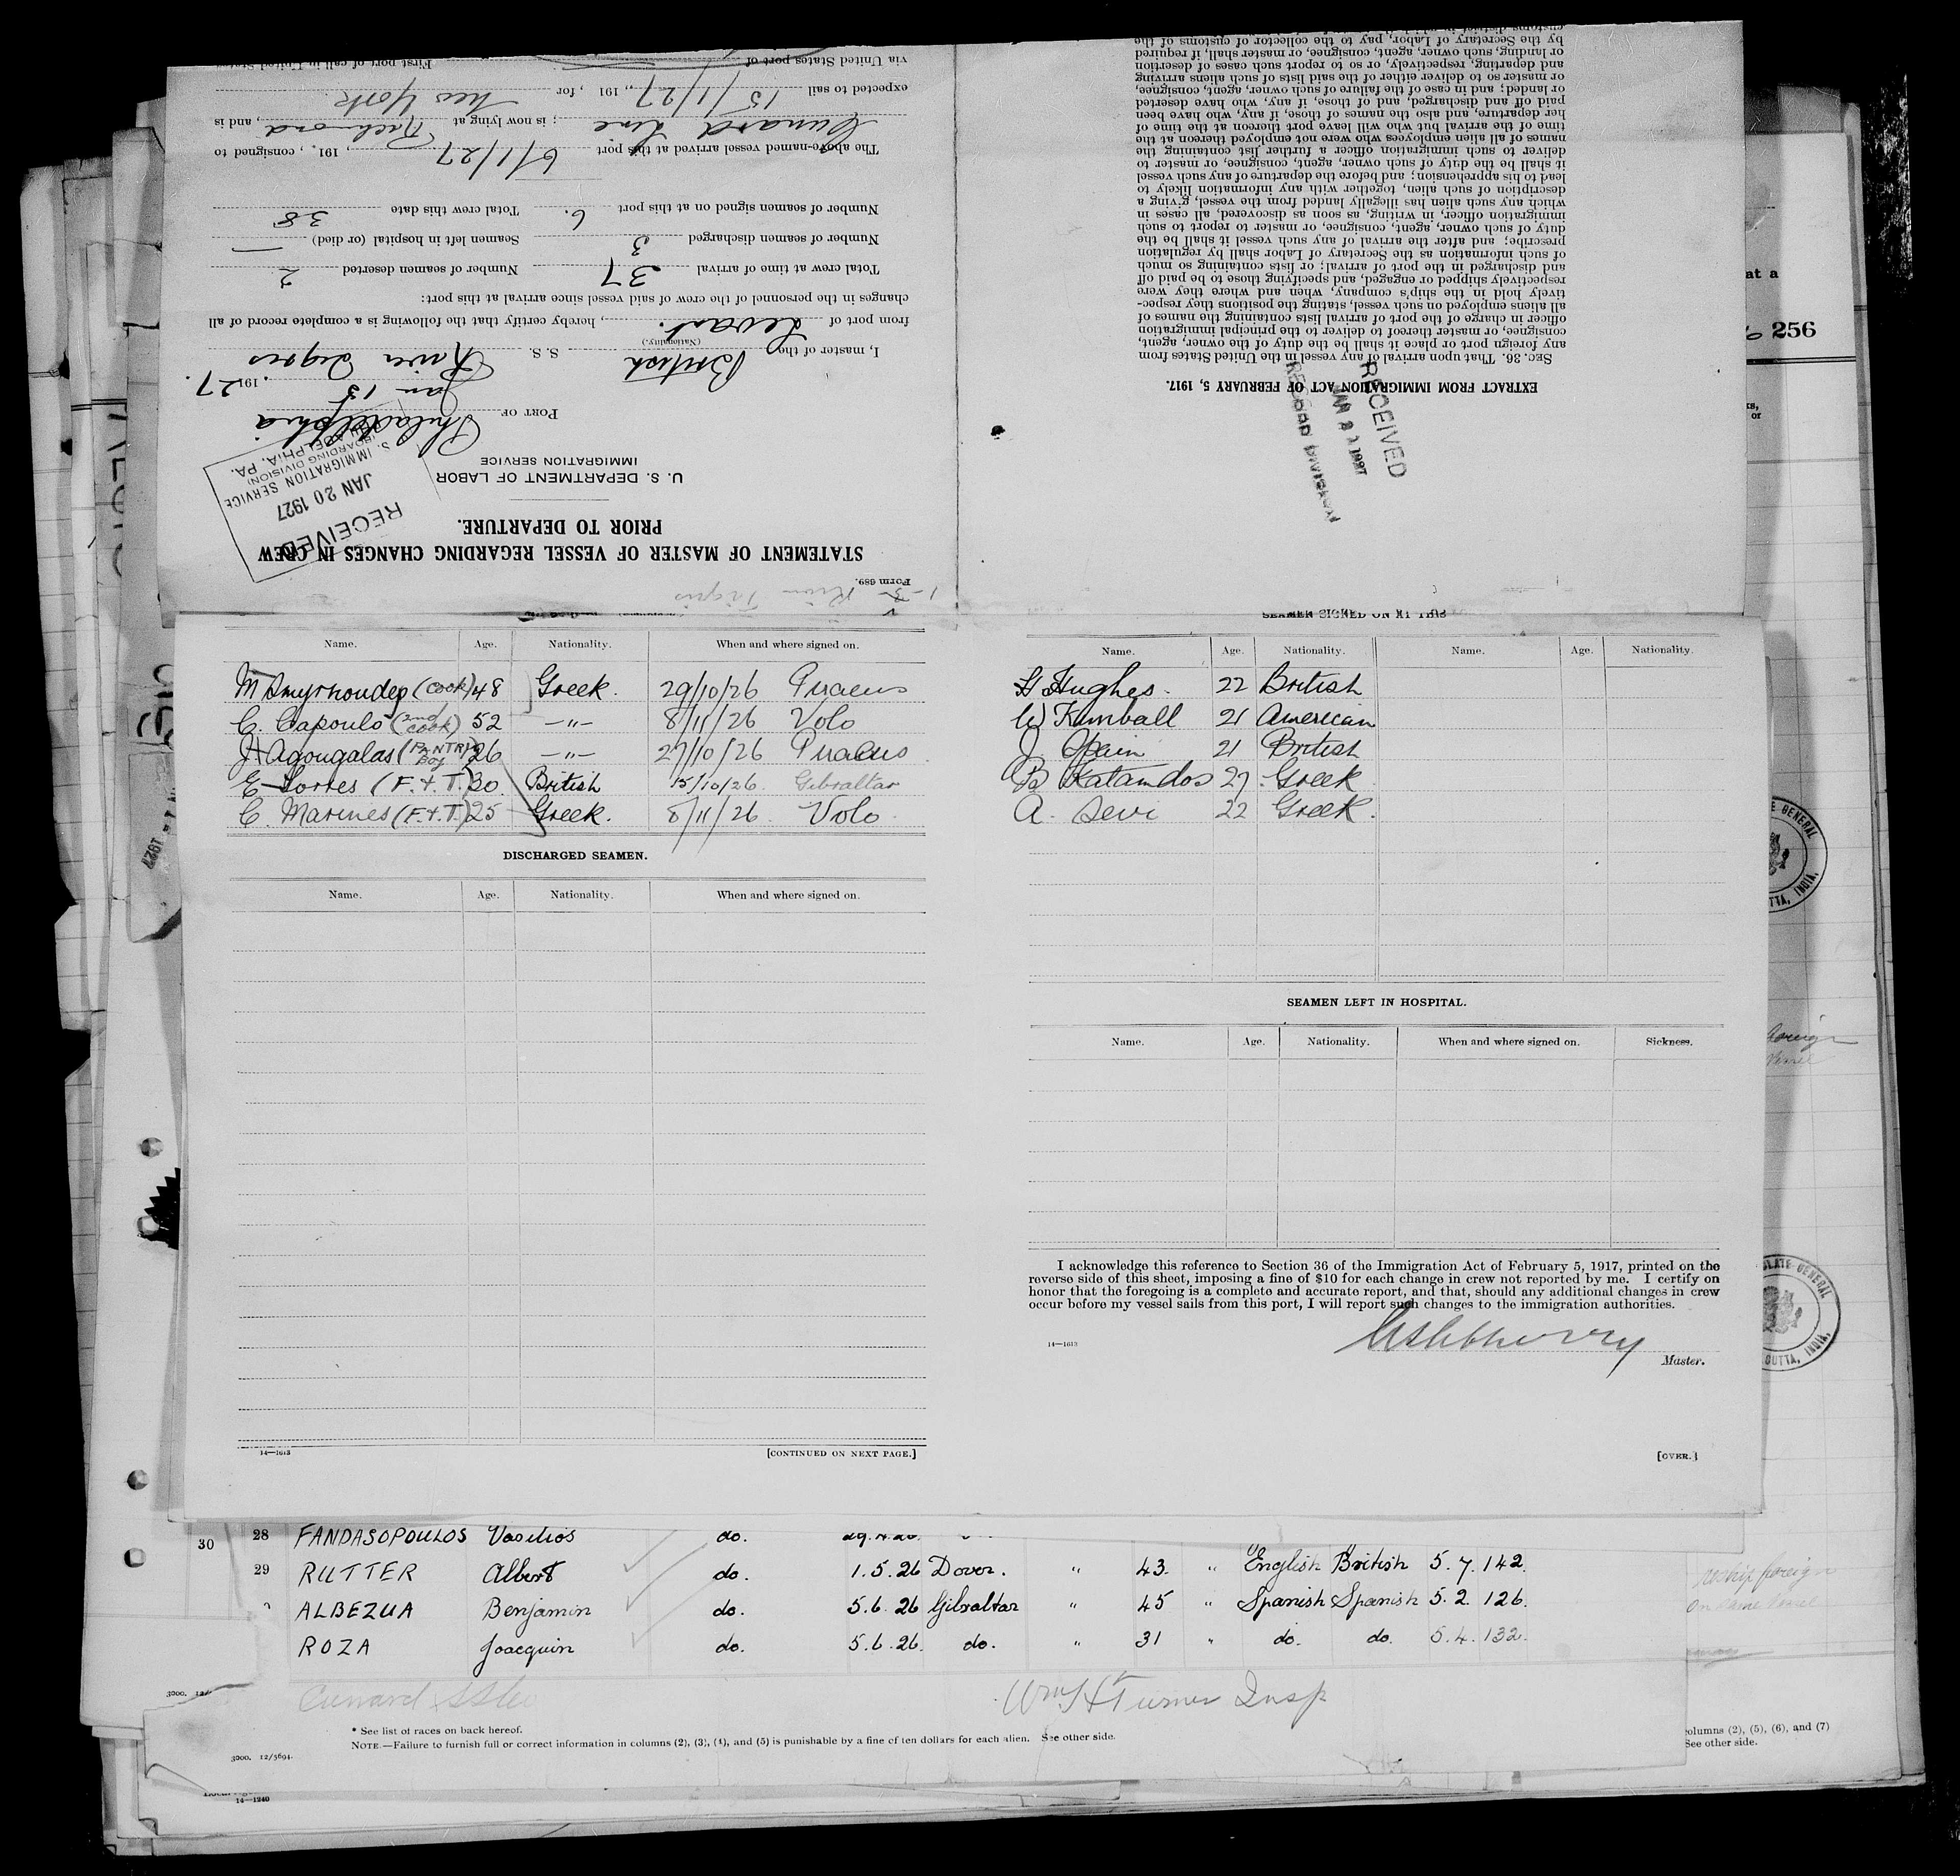 via United States port of
First port of call in United States
expected to sail 15/1/27, 191 , for New York
Cunard Line ; is now lying at Richmond , and is
The above-named vessel arrived at this port 6/1/27, 191 , consigned to
Number of seamen signed on at this port 6. Total crew this date 38
Number of seamen discharged 3 Seamen left in hospital (or died) —
Total crew at time of arrival 37 Number of seamen deserted 2
changes in the personnel of the crew of said vessel since arrival at this port:
from port of Levant. , hereby certify that the following is a complete record of all
(Nationality.)
I, master of the British S. S. River Tigris
Jan 15 , 1917 27.
PORT OF Philadelphia
IMMIGRATION SERVICE
U. S. DEPARTMENT OF LABOR
PRIOR TO DEPARTURE.
STATEMENT OF MASTER OF VESSEL REGARDING CHANGES IN CREW
Form 689.
1-3- River Tigris
RECEIVED
JAN 20 1927
U. S. IMMIGRATION SERVICE
(BOARDING DIVISION)
PHILADELPHIA, PA.
by the Secretary of Labor, pay to the collector of customs of the
or landing, such owner, agent, consignee, or master shall, if required
and departing, respectively, or so to report such cases of desertion
or master so to deliver either of the said lists of such aliens arriving
or landed; and in case of the failure of such owner, agent, consignee,
paid off and discharged, and of those, if any, who have deserted
her departure, and also the names of those, if any, who have been
time of the arrival but who will leave port thereon at the time of
names of all alien employees who were not employed thereon at the
deliver to such immigration officer a further list containing the
it shall be the duty of such owner, agent, consignee, or master to
lead to his apprehension; and before the departure of any such vessel
description of such alien, together with any information likely to
which any such alien has illegally landed from the vessel, giving a
immigration officer, in writing, as soon as discovered, all cases in
duty of such owner, agent, consignee, or master to report to such
prescribe; and after the arrival of any such vessel it shall be the
of such information as the Secretary of Labor shall by regulation
and discharged in the port of arrival; or lists containing so much
respectively shipped or engaged, and specifying those to be paid off
tively hold in the ship's company, when and where they were
all aliens employed on such vessel, stating the positions they respec-
officer in charge of the port of arrival lists containing the names of
consignee, or master thereof to deliver to the principal immigration
any foreign port or place it shall be the duty of the owner, agent,
SEC. 36. That upon arrival of any vessel in the United States from
EXTRACT FROM IMMIGRATION ACT OF FEBRUARY 5, 1917.
RECEIVED
JAN 1927
RECORD DIVISION
256
at a
or
Name. Age. Nationality. When and where signed on.
M Smyrnoudep (Cook) 48 Greek. 29/10/26 Piraeus
C. Capoulo (2nd Cook) 52 —"— 8/11/26 Volo
H Agougalas (PANTRY Boy) 26 —"— 27/10/26 Piraeus
E Torres (F. & T.) 30 British 15/10/26 Gibraltar
C. Marines (F. & T.) 25 Greek. 8/11/26 Volo
DISCHARGED SEAMEN.
Name. Age. Nationality. When and where signed on.
14—1613
[CONTINUED ON NEXT PAGE.]
SEAMEN SIGNED ON AT THIS
Name. Age. Nationality. Name. Age. Nationality.
H Hughes. 22 British
W Kimball 21 American
J. Spain 21 British
B Katandos 27 Greek
A. Sevi 22 Greek.
SEAMEN LEFT IN HOSPITAL.
Name. Age. Nationality. When and where signed on. Sickness.
I acknowledge this reference to Section 36 of the Immigration Act of February 5, 1917, printed on the
reverse side of this sheet, imposing a fine of $10 for each change in crew not reported by me. I certify on
honor that the foregoing is a complete and accurate report, and that, should any additional changes in crew
occur before my vessel sails from this port, I will report such changes to the immigration authorities.
14—1613
Master.
[OVER.]
30 28 FANDASOPOULOS Vasilios do.
29 RUTTER Albert do. 1.5.26 Dover. " 43. " English British 5.7. 142.
ALBEZUA Benjamin do. 5.6.26 Gibraltar " 45 " Spanish Spanish 5.2. 126.
ROZA Joacquin do. 5.6.26. do. " 31 " do. do. 5.4. 132.
Cunard SS Co
Wm H Turner Insp
* See list of races on back hereof.
NOTE.—Failure to furnish full or correct information in columns (2), (3), (4), and (5) is punishable by a fine of ten dollars for each alien. See other side.
3000. 12/5694.
14—1240
columns (2), (5), (6), and (7)
See other side.